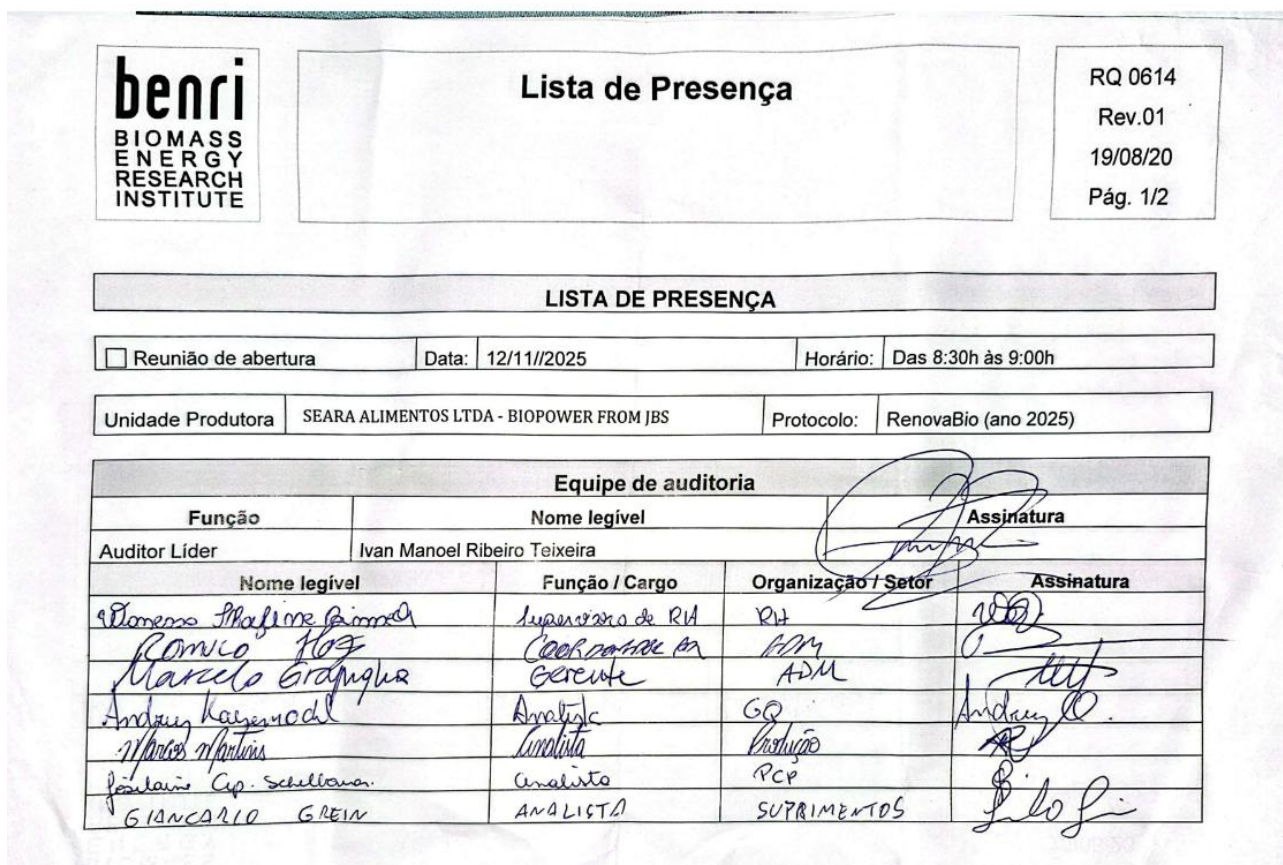 benri
BIOMASS
ENERGY
RESEARCH
INSTITUTE
Lista de Presença
RQ 0614
Rev.01
19/08/20
Pág. 1/2
LISTA DE PRESENÇA
Reunião de abertura Data: 12/11//2025 Horário: Das 8:30h às 9:00h
Unidade Produtora SEARA ALIMENTOS LTDA - BIOPOWER FROM JBS Protocolo: RenovaBio (ano 2025)
Equipe de auditoria
Função Nome legível Assinatura
Auditor Líder Ivan Manoel Ribeiro Teixeira
Nome legível Função / Cargo Organização / Setor Assinatura
de RH RH
ADM
Marcelo Gerente ADM
Andrey Analista GQ Andrey
Marcos Martins Analista Produção
Analista PCP
GIANCARLO GREIN ANALISTA SUPRIMENTOS